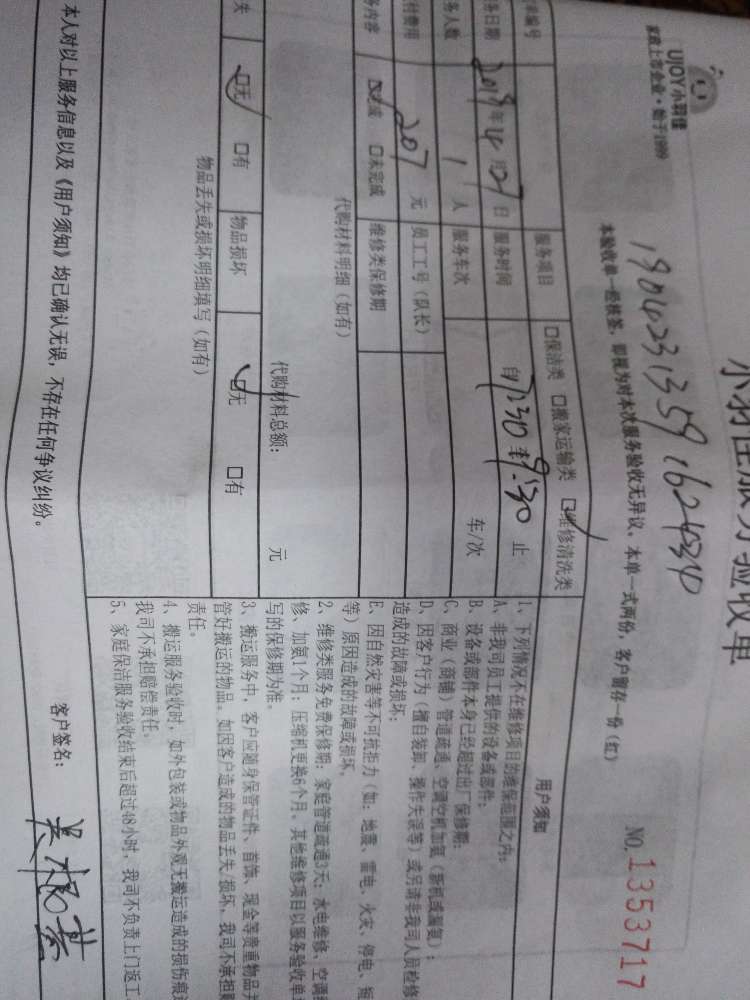 小羽佳服务验收单
UJOY小羽佳
家政上市企业·始于1999
1904231359162434
NO.1353717
本验收单一经核签，即视为对本次服务验收无异议。本单一式两份，客户留存一份（红）
单编号
服务项目
□保洁类 □搬家运输类 □维修清洗类
务日期
2019年4月27日
服务时间
自7:30至9:30止
务人数
1人
服务车次
车/次
付费用
207元
员工工号（队长）
务内容
□完成 □未完成
维修类保修期
代购材料明细（如有）
代购材料总额：
元
失
□无 □有
物品损坏
□无 □有
物品丢失或损坏明细填写（如有）
用户须知
1、下列情况不在维修项目的维保范围之内：
A、非我司员工提供的设备或部件；
B、设备或部件本身已经超过出厂保修期；
C、商业（商铺）管道疏通、空调空机加氨（新机或漏氨）；
D、因客户行为（擅自装卸、操作失误等）或另请非我司人员检修
造成的故障或损坏；
E、因自然灾害等不可抗拒力（如：地震、雷电、火灾、停电、短
等）原因造成的故障或损坏。
2、维修类服务免费保修期：家庭管道疏通3天；水电维修、空调
修、加氨1个月；压缩机更换6个月。其他维修项目以服务验收单
写的保修期为准。
3、搬运服务中，客户应随身保管证件、首饰、现金等贵重物品并
管好搬运的物品。如因客户造成的物品丢失/损坏，我司不承担
责任。
4、搬运服务验收时，如外包装或物品外观无搬运造成的损伤痕
我司不承担赔偿责任。
5、家庭保洁服务验收结束后超过48小时，我司不负责上门返工
本人对以上服务信息以及《用户须知》均已确认无误，不存在任何争议纠纷。
客户签名：